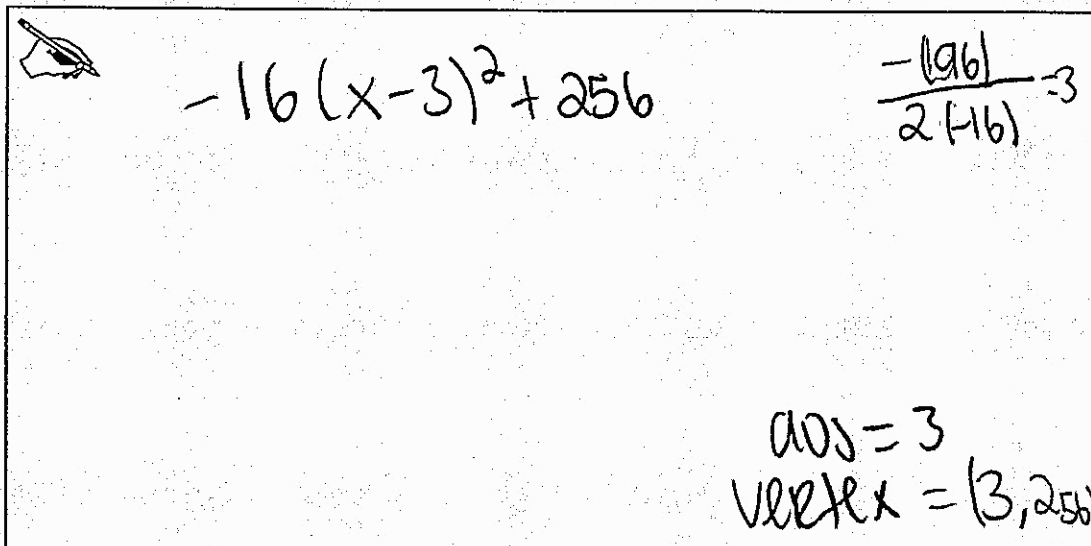 -16(x-3)²+256
-(96)
2(-16)
=3
aos = 3
vertex = (3,256)